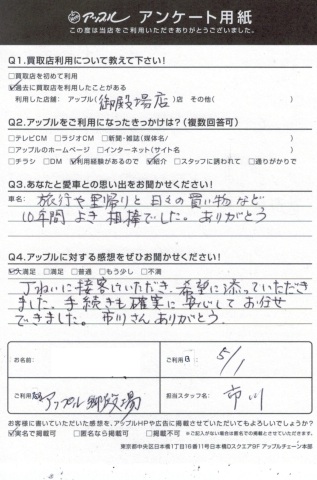 アップル アンケート用紙
この度は当店をご利用いただきありがとうございました。
Q1.買取店利用について教えて下さい!
□買取店を初めて利用
☑過去に買取店を利用したことがある
利用した店舗: アップル(御殿場店)店 その他( )
Q2.アップルをご利用になったきっかけは?(複数回答可)
□テレビCM □ラジオCM □新聞・雑誌(媒体名/ )
□アップルのホームページ □インターネット(サイト名 )
□チラシ □DM ☑利用経験があるので ☑紹介 □スタッフに誘われて □通りがかりで
Q3.あなたと愛車との思い出をお聞かせください!
車名: 旅行や里帰りと日々の買い物など、
10年間よき相棒でした。ありがとう
Q4.アップルに対する感想をぜひお聞かせください!
☑大満足 □満足 □普通 □もう少し □不満
丁ねいに接客いただき、希望に添っていただき
ました。手続きも確実に安心してお任せ
できました。市川さんありがとう。
お名前:
ご利用日: 5/1
ご利用店: アップル御殿場
担当スタッフ名: 市川
お客様に書いていただいた感想を、アップルHPや広告に掲載させていただいてもよろしいでしょうか?
☑実名で掲載可 □匿名なら掲載可 □掲載不可 ※ご記入がない場合は匿名での掲載とさせていただきます。
東京都中央区日本橋1丁目16番11号日本橋Dスクエア9F アップルチェーン本部